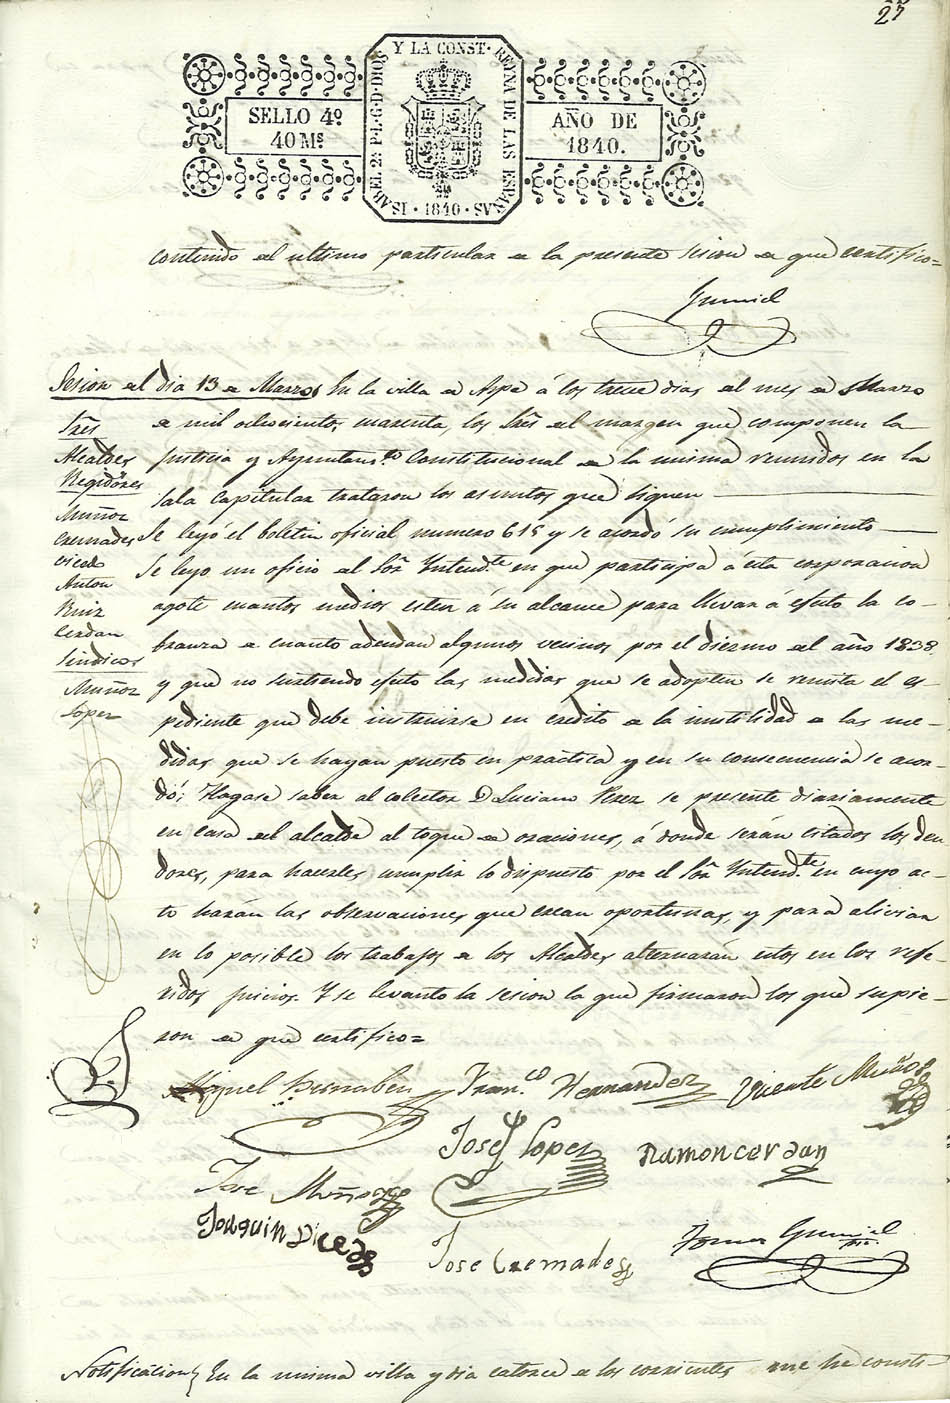 27
ISABEL 2ª P.L.G.D. DIOS Y LA CONST. REYNA DE LAS ESPAÑAS · 1840 ·
SELLO 4º
40 Ms
AÑO DE
1840.
contenido del ultimo particular de la presente sesion de que certifico=
Gumiel
Sesion del dia 13 de Marzo
Sres
Alcaldes
Regidores
Muñoz
Cremades
Anton
Ruiz
Cerdan
Sindicos
Muñoz
Lopez
En la villa de Aspe á los trece dias del mes de Marzo
de mil ochocientos cuarenta, los Sres del margen que componen la
Justicia y Ayuntamto Constitucional de la misma reunidos en la
sala Capitular trataron los asuntos que siguen
Se leyó el boletin oficial numero 615 y se acordó su cumplimiento
Se leyo un oficio del Sor Yntendte en que participa á esta corporacion
agote cuantos medios esten á su alcance para llevar á efecto la co-
branza de cuanto adeudan algunos vecinos, por el diezmo del año 1838.
y que no surtiendo efecto las medidas que se adopten se remita el es-
pediente que debe instruirse en credito de la inutilidad de las me-
didas que se hayan puesto en practica y en su consecuencia se acor-
dó; Hagase saber al colector D Luciano Perez se presente diariamente
en casa del alcalde al toque de oraciones, á donde serán citados los deu
dores, para hacerles cumplir lo dispuesto por el Sor Yntendte en cuyo ac-
to harán las observaciones que crean oportunas, y para aliviar
en lo posible los trabajos de los Alcaldes alternarán estos en los refe-
ridos juicios. Y se levanto la sesion la que firmaron los que supie-
ron de que certifico=
Miguel Bernabeu y Franco Hernandez Vicente Muñoz
José Lopez Ramon cerdan
Jose Muñoz
Joaquin
Jose Cremades
Gumiel
srio.
Notificacion En la misma villa y dia catorce de los corrientes me he consti-